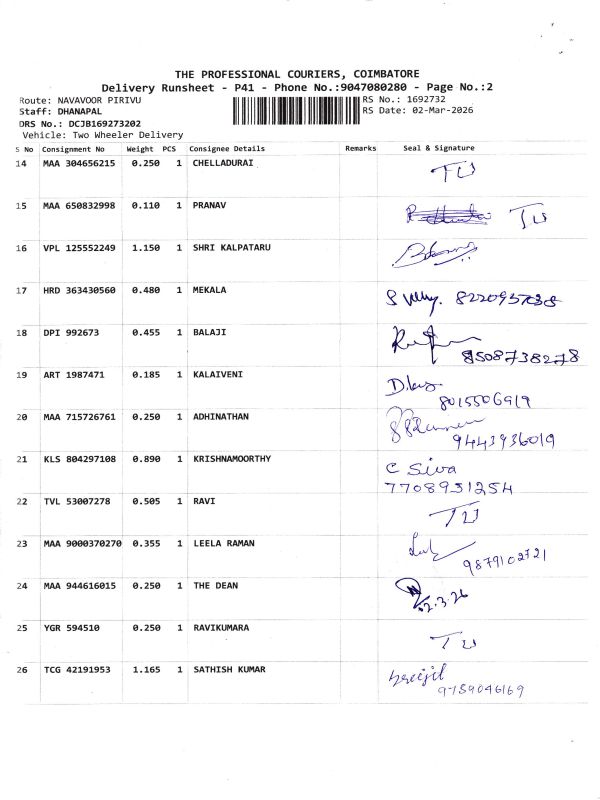 THE PROFESSIONAL COURIERS, COIMBATORE
Delivery Runsheet - P41 - Phone No.:9047080280 - Page No.:2
Route: NAVAVOOR PIRIVU RS No.: 1692732
Staff: DHANAPAL RS Date: 02-Mar-2026
DRS No.: DCJB169273202
Vehicle: Two Wheeler Delivery
S No Consignment No Weight PCS Consignee Details Remarks Seal & Signature
14 MAA 304656215 0.250 1 CHELLADURAI TU
15 MAA 650832998 0.110 1 PRANAV TU
16 VPL 125552249 1.150 1 SHRI KALPATARU
17 HRD 363430560 0.480 1 MEKALA
18 DPI 992673 0.455 1 BALAJI
8508738278
19 ART 1987471 0.185 1 KALAIVENI
8015506919
20 MAA 715726761 0.250 1 ADHINATHAN
9443936019
21 KLS 804297108 0.890 1 KRISHNAMOORTHY C Siva
7708931254
22 TVL 53007278 0.505 1 RAVI TU
23 MAA 9000370270 0.355 1 LEELA RAMAN
9879102721
24 MAA 944616015 0.250 1 THE DEAN
2.3.26
25 YGR 594510 0.250 1 RAVIKUMARA TU
26 TCG 42191953 1.165 1 SATHISH KUMAR
9759046169